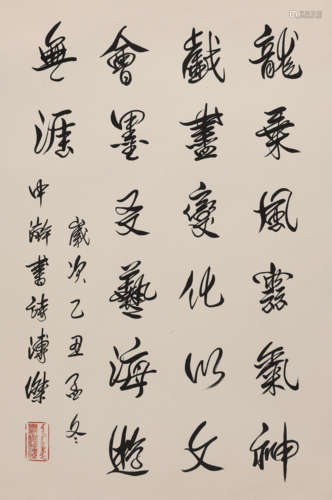 龍乘風雲氣神
戲盡變化以文
會墨友藝海遊
無涯
歲次乙丑孟冬
中澣書溥傑